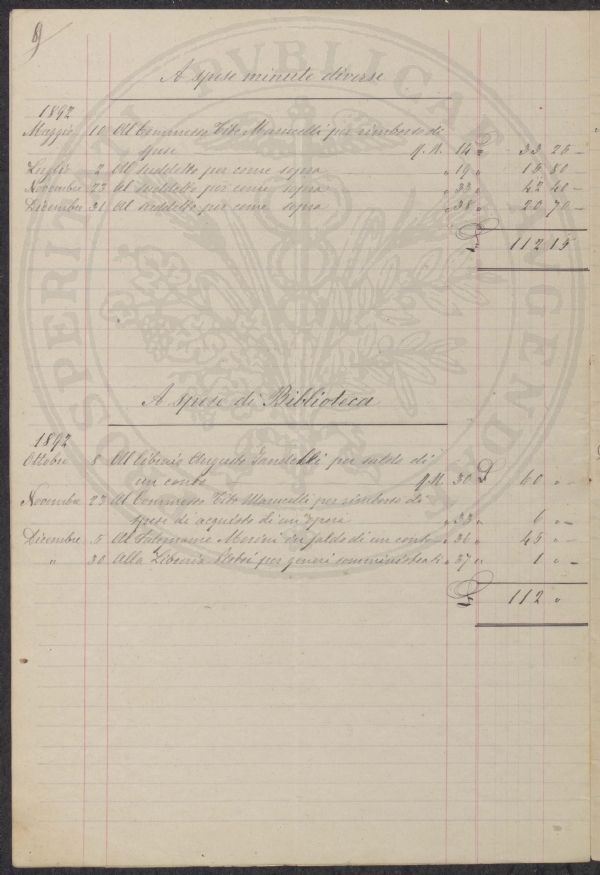 9
A spese minute diverse
1892
Maggio 10 Al Commesso Tito Marucelli per rimborso di
spese q.M. 14 £ 33 25 -
Luglio 2 Al suddetto per come sopra " 19 " 15 80
Novembre 23 Al suddetto per come sopra " 33 " 42 40 -
Dicembre 31 Al suddetto per come sopra " 38 " 20 70 -
£ 112 15
A spese di Biblioteca
1892
Ottobre 8 Al libraio Augusto per saldo di
un conto q.M. 30 £ 60 " -
Novembre 23 Al Commesso Tito Marucelli per rimborso di
spese di acquisto di un' opera " 33 " 6 " -
Dicembre 5 Al saldo di un conto " 36 " 45 " -
" 30 Alla Libreria per generi somministrati " 37 " 1 " -
£ 112 "
PROSPERITATI PVBLICAE AVGENDAE